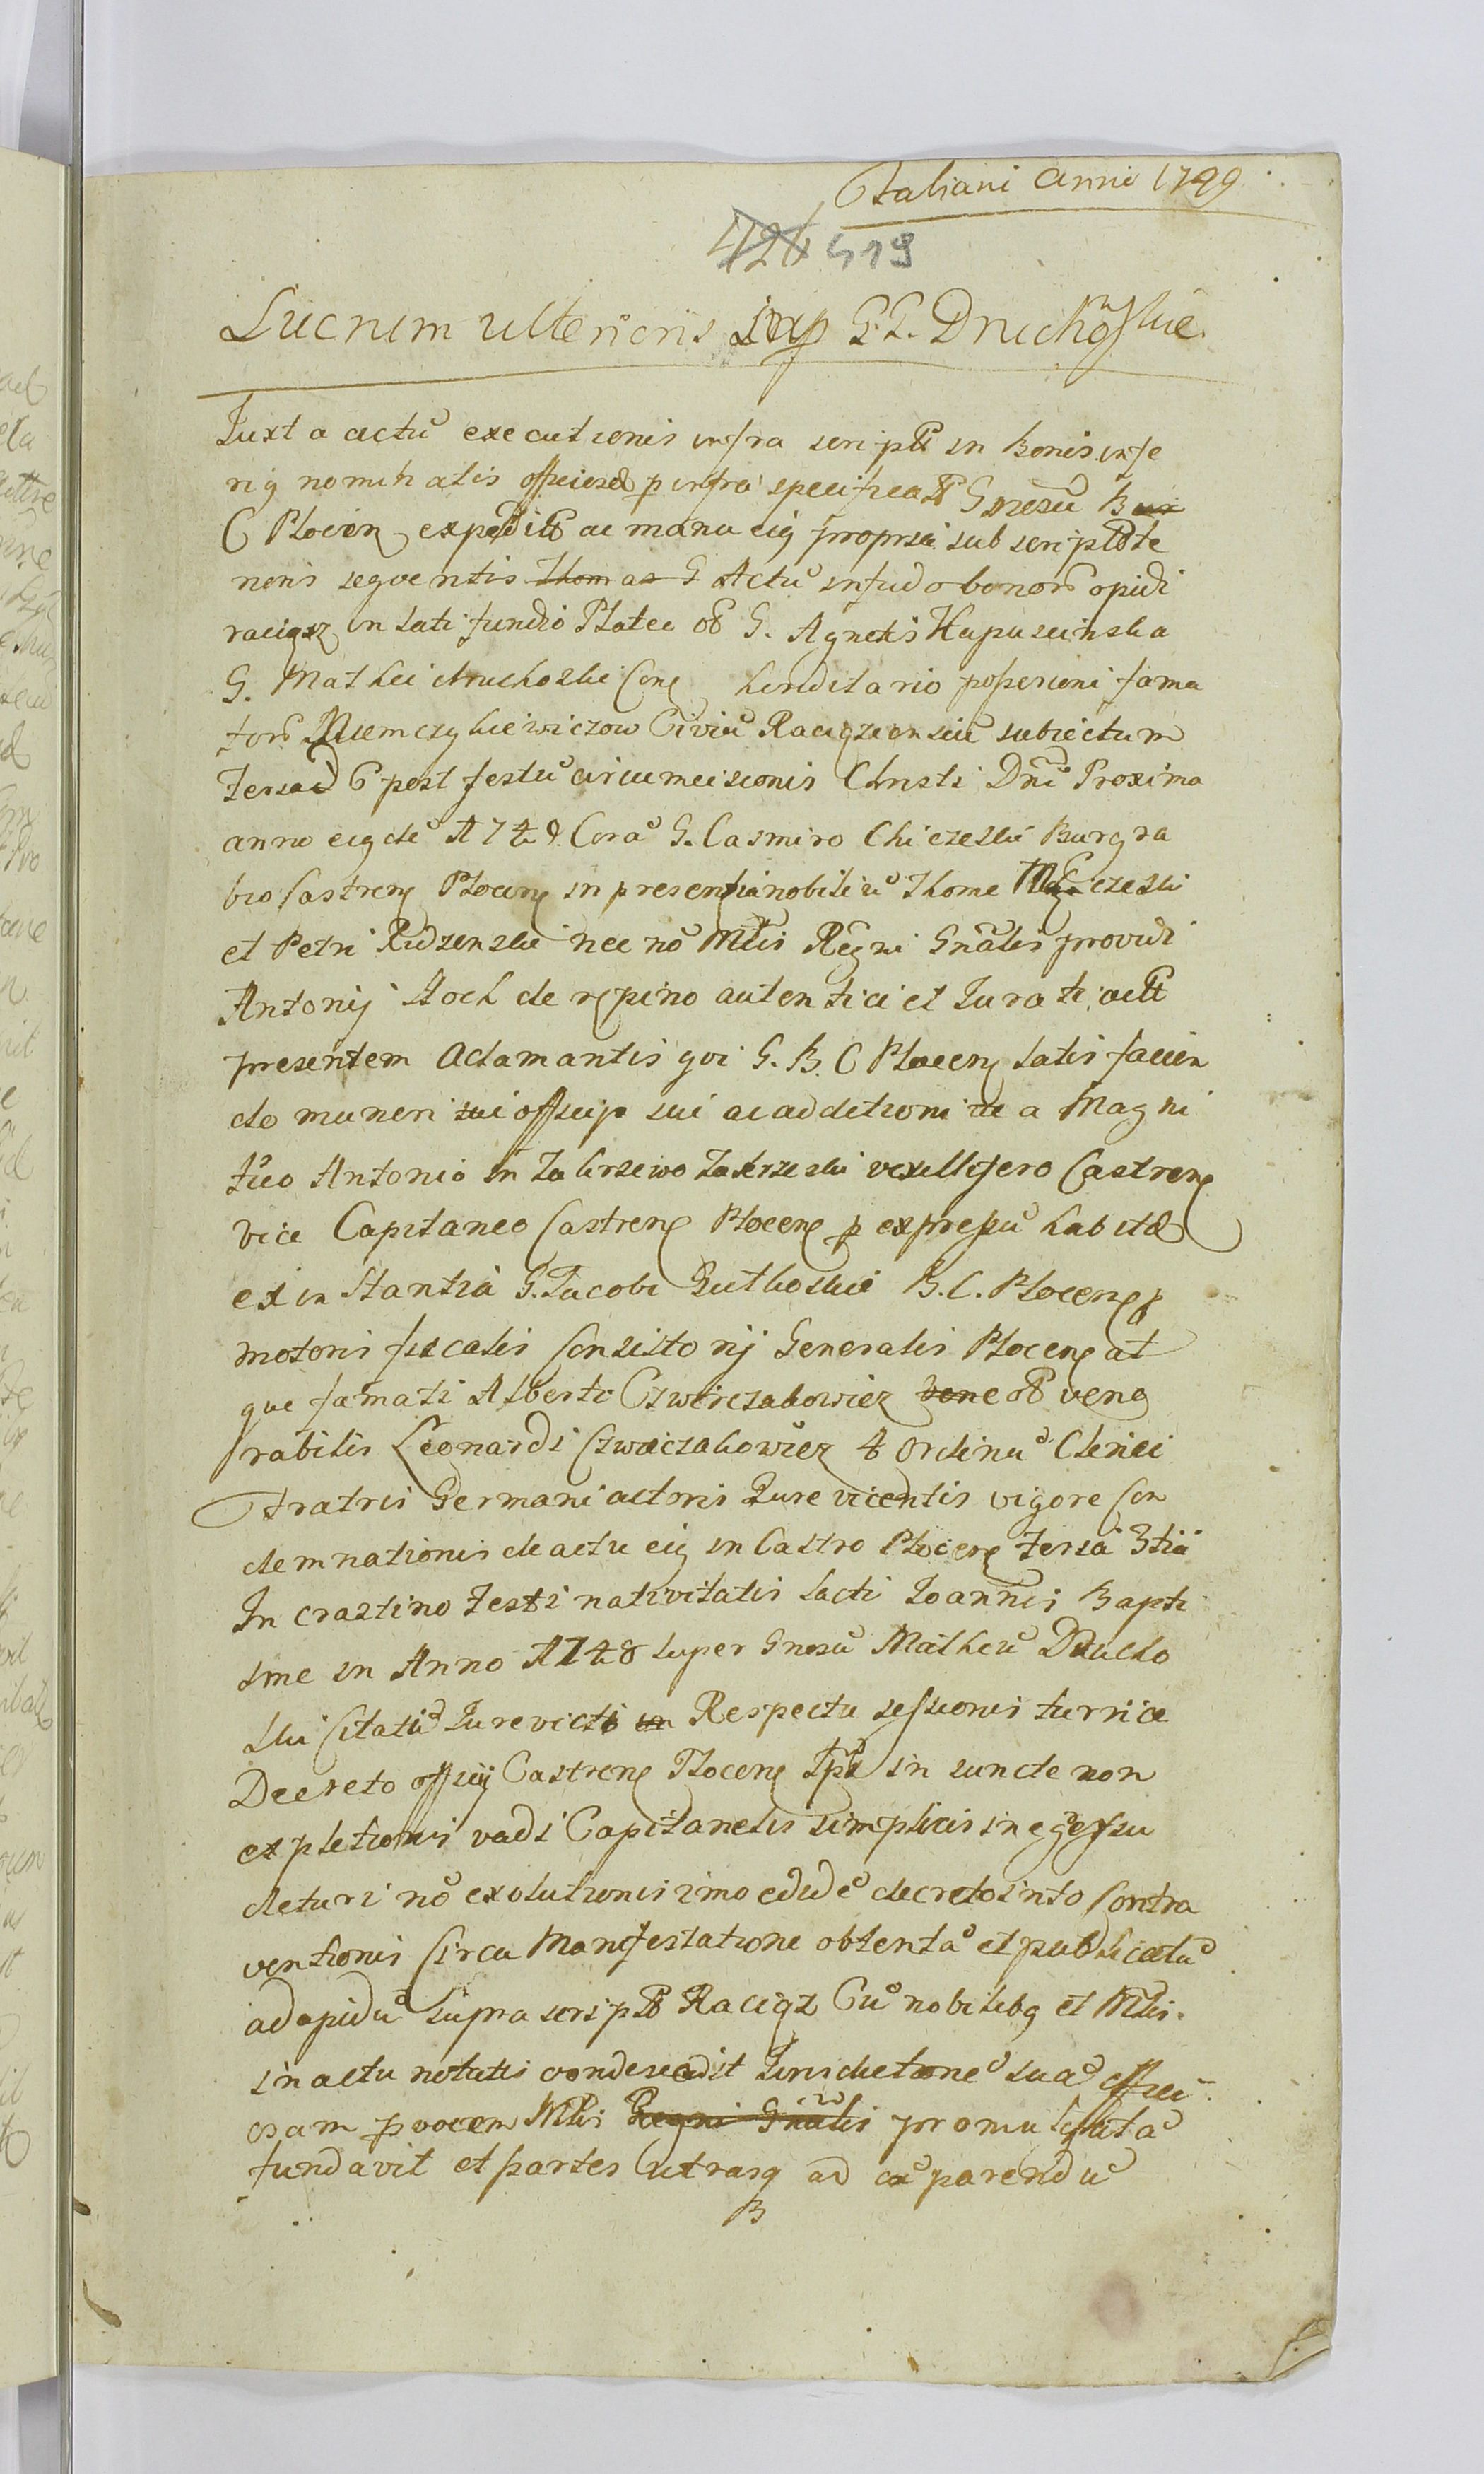 Italiani Anni 1749
419
Lucrum ulterioris sup G. G. Druchoskie
Juxta actū executionis infra script in Bonis infe
riq nominatis officiose p infra specificat Gnesū Bur
C Plocen expedit ac manu eiq propria sub script te
noris sequentis Thomas G Actū in fundo bonorū opidi
raciąz in lati fundio Platea G. Agnetis Hapuscinska
G. Mathei druchoski Conq hereditario possesioni fama
torū Niemczykiewiczow Civiū Raciąziensiū subiectum
Feria 6 post festū circumcisionis Christi Dni Proxima
anno eiqdē 1749 Corā G. Casmiro Chiczeski Burgra
bio Castrenq Plocenq in presentia nobiliū Thome czeski
et Petri Rudzenski nec nō Mtlis Regni Gnalis providi
Antonij Sock de rępino autentici et Jurati act
presentem Aclamantis qvi G. B. C Plocenq satis facien
do muneri sui officij sui ac ad detroni a Magni
fico Antonio in Zakrzewo Zakrzeski vexillifero Castrenq
Vice Capitaneo Castrenq Plocenq p expressū habit
ex in Stantia G. Jacobi Rutkoskie B. C. Plocenq p
motoris fiscalis Consistorij Generalis Plocenq at
que famati Alberti Czwierczakowicz vene vene
rabilis Leonardi Czwierczakowicz 4 Ordinū Clerici
Fratris Germani actoris Jure vicentis vigore Con
demnationis de actu eiq in Castro Plocenq Feria 3tia
In crastino Festi nativitatis Sacti Joannis Bapti
sme in Anno 1748 super Gnosū Matheū Drucho
ski Citatū Jure victi in Respectu sessionis turrice
Decreto officij Castrenq Plocenq in iuncte non
expletionis vadi Capitanelis simplicis in egressu
deturi nō exolutionis imo eidē decretos into Contra
ventionis Circa Manifestatione obtentā et publicatā
ad opidū supra script Raciąz Cū nobilibq et Mtlis.
in actu notatis condescendit Jurisdictionē suā offici
osam p vocem Mtlis Regni Gnalis promulgata
fundavit et partes utrasq ad cō parendū
B